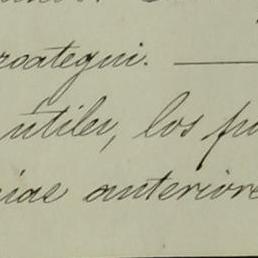 roategui.
utiles, los pu
ias anteriore